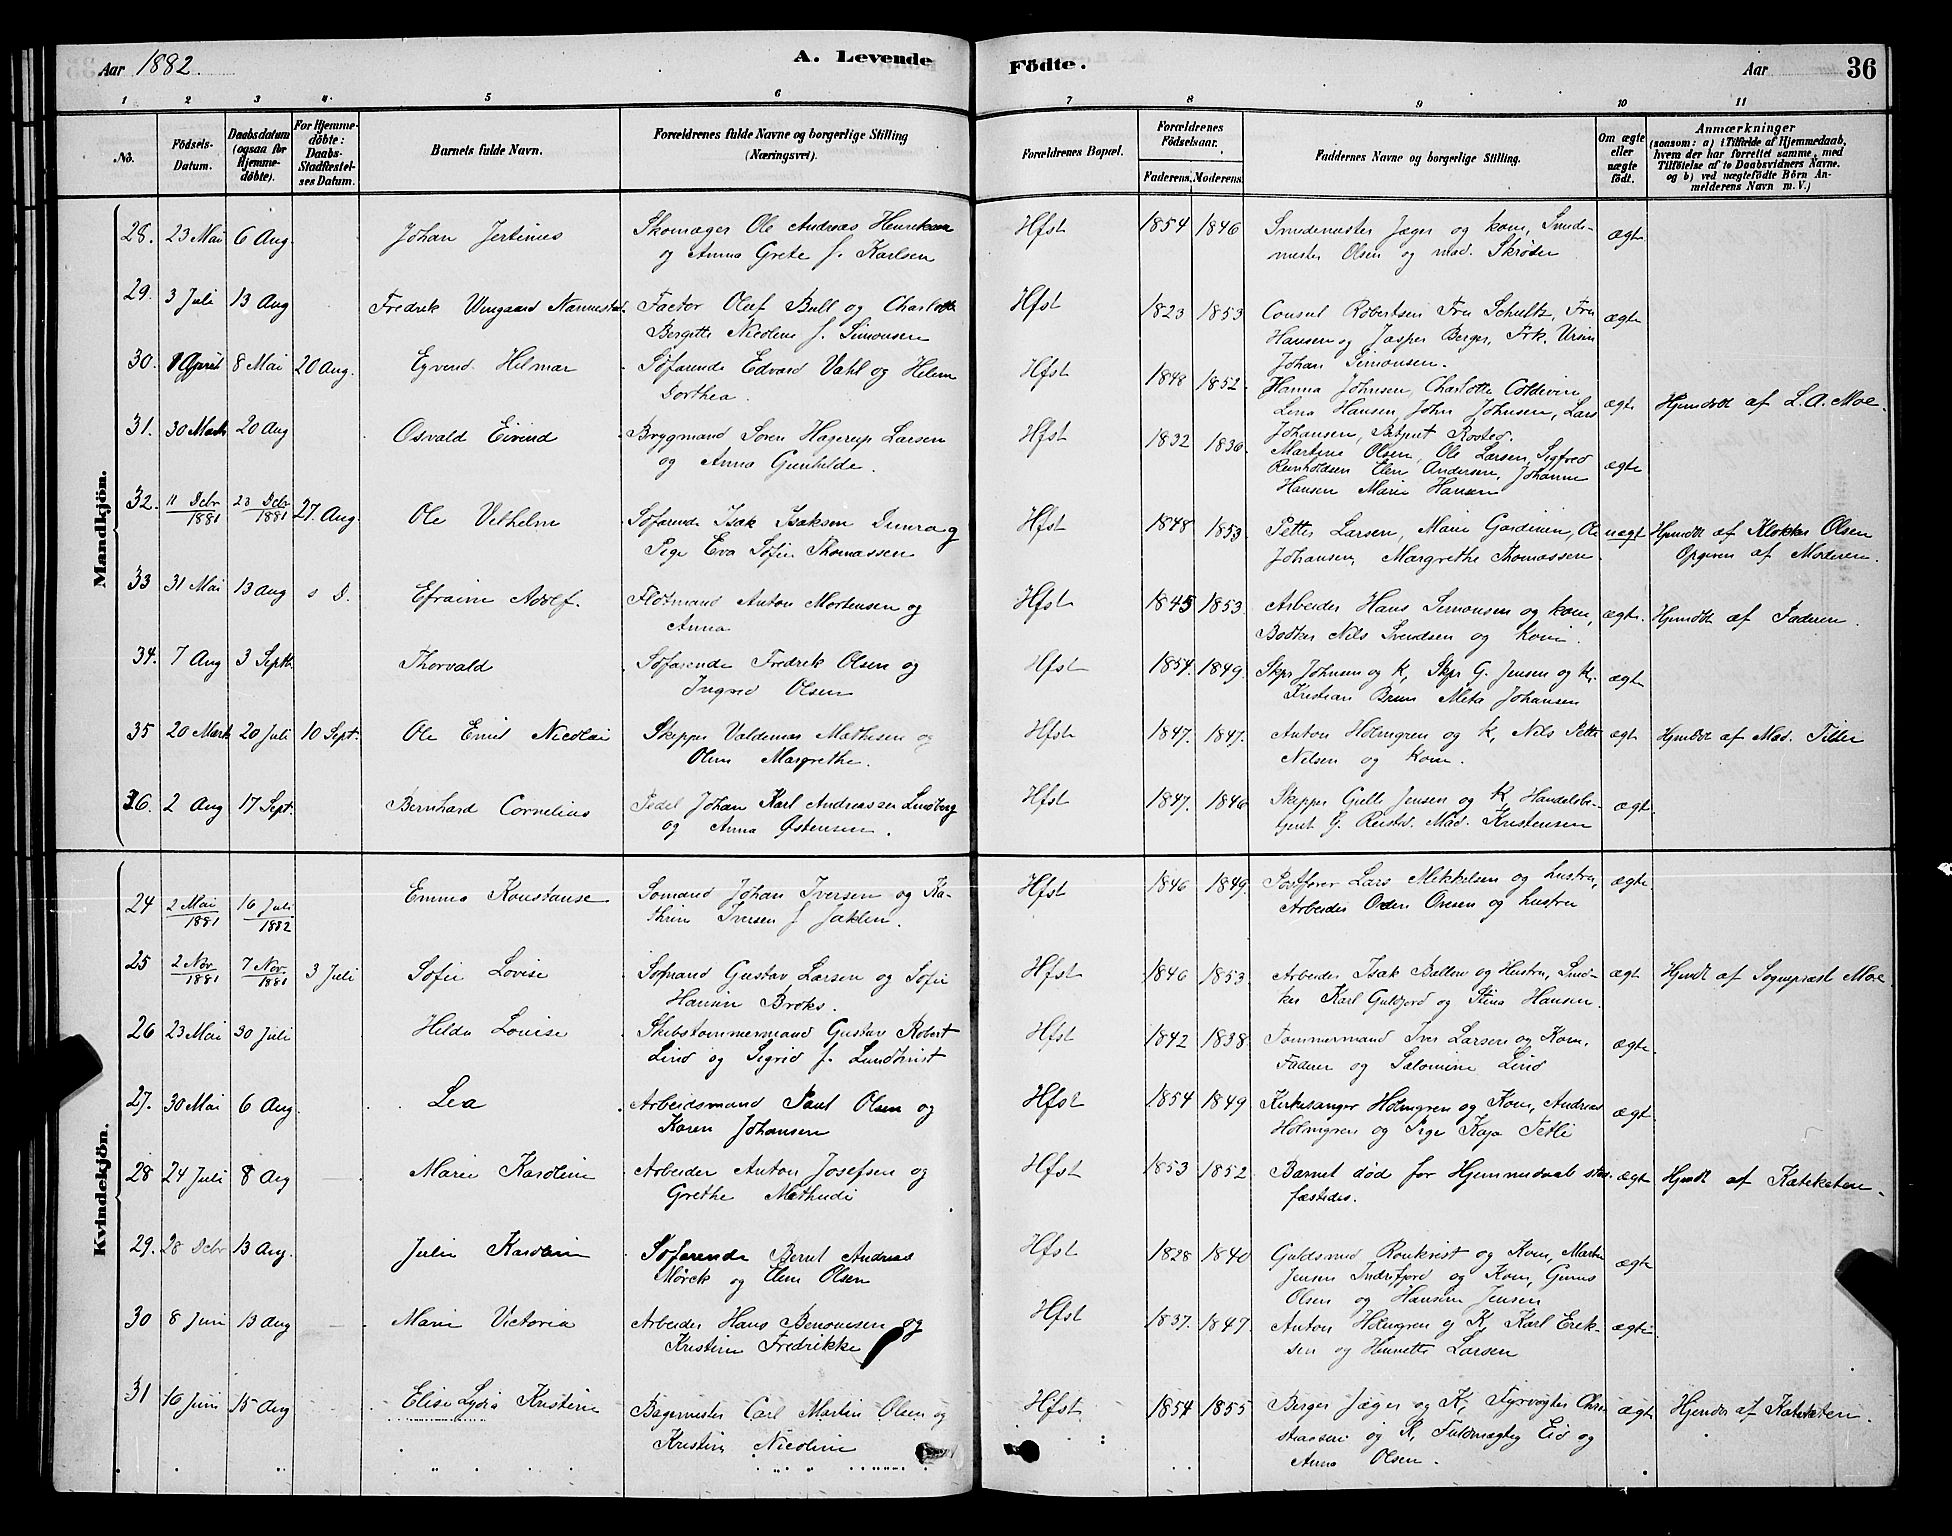 Aar 1882.
A. Levende
Födte.
Aar
36
1 2 3 4. 5 6 7 8 9 10 11
No.
Födsels-Datum.
Daabsdatum (ogsaa for Hjemme-döbte).
For Hjemme-döbte: Daabs-Stadfæstel-ses Datum.
Barnets fulde Navn.
Forældrenes fulde Navne og borgerlige Stilling (Næringsvei).
Forældrenes Bopæl.
Forældrenes Födselsaar.
Faderens. Moderens.
Faddernes Navne og borgerlige Stilling.
Om ægte eller uægte födt.
Anmærkninger (saasom: a) i Tilfælde af Hjemmedaab, hvem der har forrettet samme, med Tilföielse af to Daabsvidners Navne. og b) ved uægtefödte Börn An-melderens Navn m. V.)
Mandkjön.
28. 23 Mai 6 Aug. Johan Jertinius Skomager Ole Andreas Henriksen Hfst 1854 1846 Smedemester Jæger og kone, Smede- ægte
og Anna Grete f. Karlsen mester Olsen og mad. Skrøder
29. 3 Juli 13 Aug Fredrik Wingaard Nannestad. Factor Oluf Bull og Charlotte Hfst 1823 1853 Consul Robertsen Fru Schultz, Fru ægte
Bergitte Nicoline f. Simonsen Hansen og Jasper Berger, Frk. Ursin
Johan Simonsen.
30. 8 April 8 Mai 20 Aug. Eyvind Hilmar Söfarende Edvard Vahl og Helene Hfst 1848 1852 Hanna Johnsen, Charlotte Coldevin ægte Hjemdöbt af L. A. Moe.
Dorthea. Lina Hansen, John Johnsen, Lars
Johansen, Rosted.
31. 30 Marts 20 Aug Osvald Eivind Bryggmand Soren Hagerup Larsen Hfst 1832 1836 Martine Olsen, Ole Larsen, Sigfred ægte
og Anna Gunhilde. Reinholdsen Elen Andersen, Johanne
Hansen Marie Hansen
32. 11 Decbr 1881 23 Decbr 1881 27. Aug. Ole Vilhelm Söfarende Isak Isaksen og Hfst 1848 1853 Petter Larsen, Marie Gardinin, Ole uægte Hjemdöbt af Klokker Olsen
Pige Eva Sofie Thomassen Johansen, Margrethe Thomassen Opgiven af Moderen.
33 31 Mai 13 Aug s D. Efraim Adolf. Flötmand Anton Mortensen og Hfst 1845 1853. Arbeider Hans Simonsen og kone, ægte. Hjemdöbt af Faderen.
Anna Bödker Nils Svendsen og Kone.
34. 7 Aug 3 Septb. Thorvald Söfarende Fredrik Olsen og Hfst 1854. 1849. Skpr Johnsen og K, Skpr G. Jensen og K. ægte
Ingrid Olsen Kristian Bruun Meta Johansen
35 20 Marts 20 Juli 10 Sept. Ole Emil Nicolai Skipper Valdemar Mathisen og Hfst 1847. 1847. Anton Holmgren og K, Nils Petter ægte Hjemdöbt af Mad. Tiller
Oline Margrethe. Nilsen og Kone.
36. 2 Aug 17 Sept. Bernhard Cornelius Pedel Johan Karl Andreassen Lindberg Hfst 1847. 1846 Skipper Gjette Jensen og K, Handelsbe- ægte
og Anna Østensen. tjent G. Reistad. Mad. Kristensen
Kvindekjön.
24 2 Mai 1881 16 Juli 1882 Emma Konstanse Sømand Johan Iversen og Ka- Hfst 1846 1849. Postförer Lars Mikkelsen og hustru, ægte
thrine Iversen f Jakler. Arbeider Oden Ovesen og hustru
25 2 Nov. 1881 7 Nov. 1881 3 Juli Sofie Lovise Sømand Gustav Larsen og Sofie Hfst 1846 1853. Arbeider Isak Ballin og Hustru, Sned- ægte Hjemdt af Sognepræst Moe
Hansine Broks. ker Karl Guldfjord og Stina Hansen.
26 23 Mai 30 Juli Hilda Louise Skibstømmermand Gustav Robert Hfst 1842 1838. Tømmermand Iver Larsen og Kone, ægte.
Lind og Sigrid f. Lundkvist Fadren og Salomine Lind
27. 30 Mai 6 Aug. Lea Arbeidsmand Paul Olsen og Hfst 1854 1849 Kirkesanger Holmgren og Kone, Andreas ægte
Karen Johansen Holmgren og Pige Kaja Tetli
28 24 Juli 8 Aug Marie Karoline Arbeider Anton Josefsen og Hfst 1853 1852. Barnet död for Hjemmedaab stad- ægte Hjemdt af Kateketen.
Grethe Mathildi fæstedes.
29. 28 Decbr 13 Aug. Julie Karoline Söfarende Bernt Andreas Hfst 1828 1840 Guldsmed Ronkvist og Kone, Martin ægte
Mörck og Elen Olsen Jensen Indrefjord og Kone, Gunnis
Olsen og Hansine Jensen
30 8 Juni 13 Aug Marie Victoria Arbeider Hans Benonisen og Hfst 1837. 1847. Anton Holmgren og K, Karl Erik- ægte
Kristine Fredrikke sen og Henriette Larsen
31 16 Juni 15 Aug Elise Lydia Kristine Bagermester Carl Martin Olsen og Hfst 1854 1855 Berger Jæger og K, Fyrvogter Chri- ægte Hjemdt af Kateketen.
Kristine Nicoline stiansen og K, Fuldmægtig Eid og
Anna Olsen.